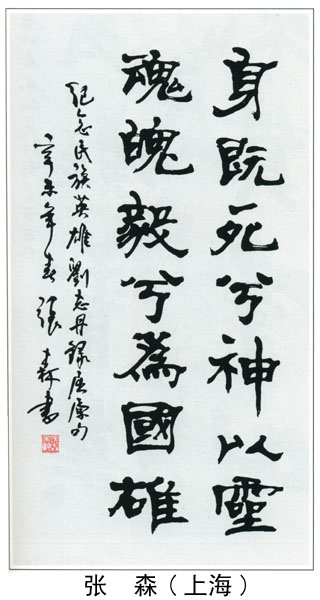 身既死兮神以靈
魂魄毅兮爲國雄
紀念民族英雄劉志丹錄屈原句
辛未年春張森書
张　森（上海）